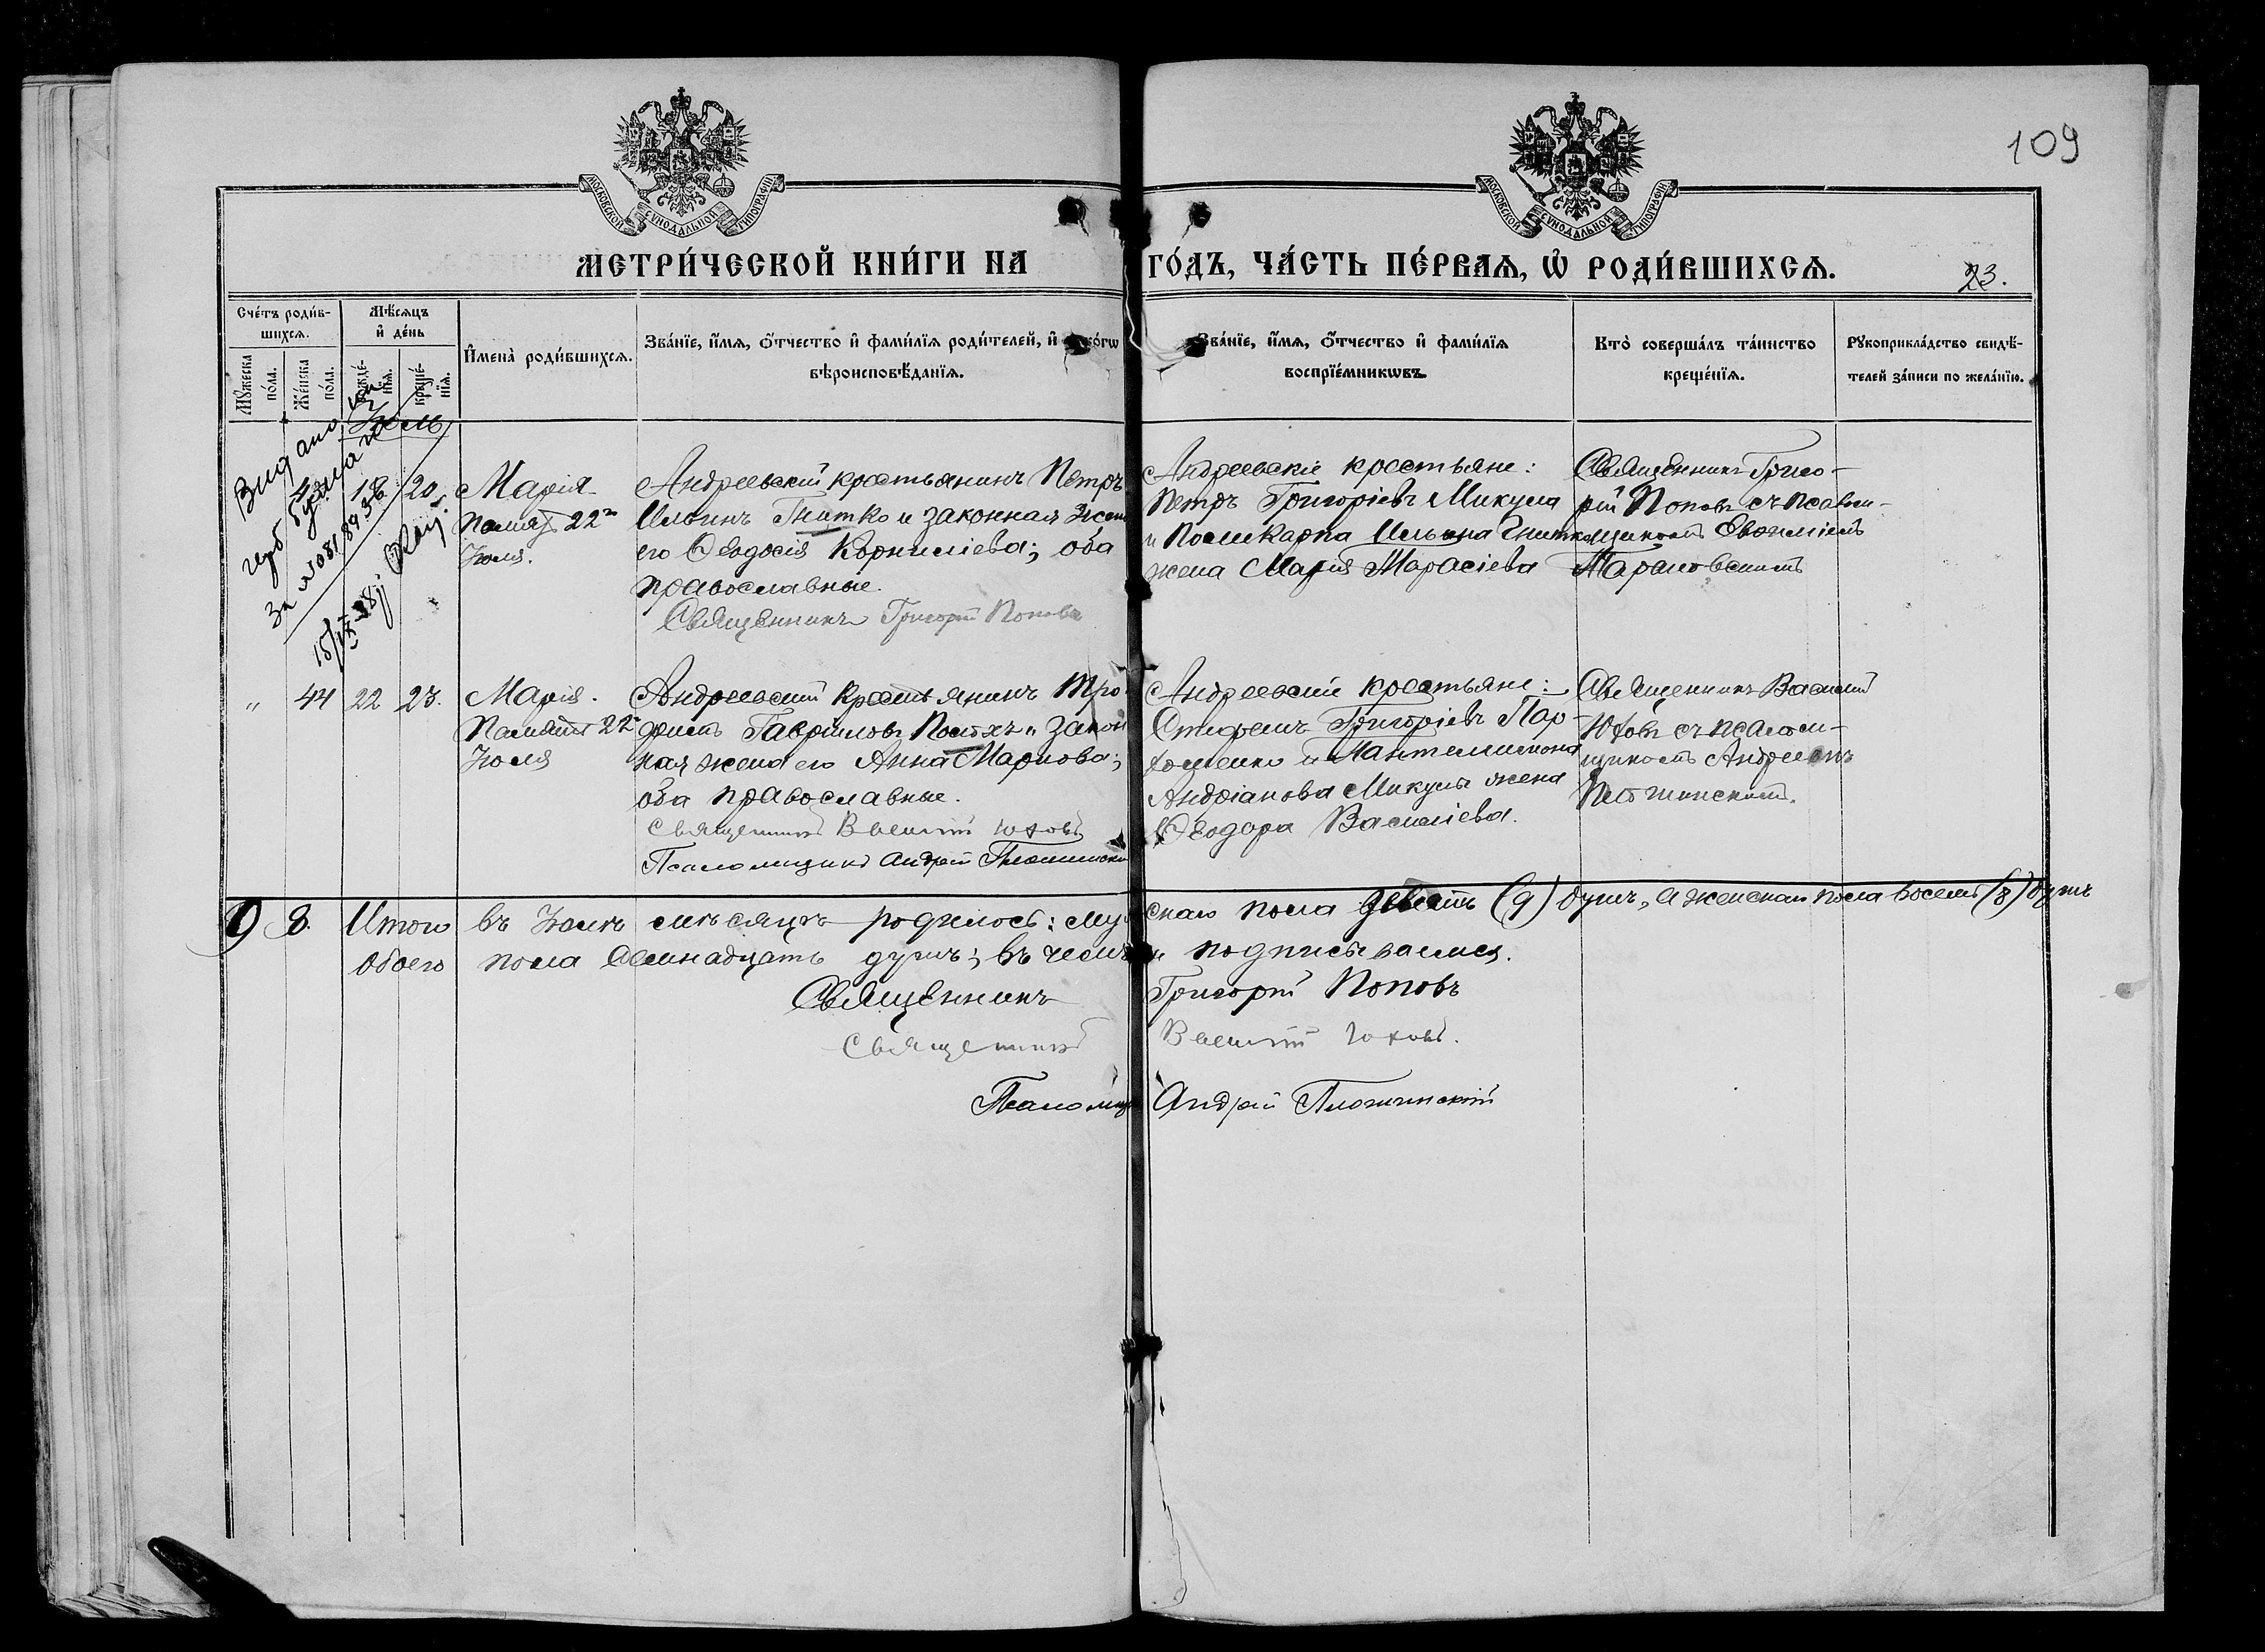 109
МОСКОВСКОЙ СѴНОДАЛЬНОЙ ТИПОГРАФІИ
МОСКОВСКОЙ СѴНОДАЛЬНОЙ ТИПОГРАФІИ
МЕТРИ́ЧЕСКОЙ КНИ́ГИ НА ГО́ДЪ, ЧА́СТЬ ПЕ́РВАѦ, Ѡ РОДИ́ВШИХСѦ.
23.
Сче́тъ роди́в-
шихсѧ.
Мꙋ́жеска по́ла.
Же́нска по́ла.
Мѣ́сѧцъ
и҆ де́нь
рожде́-
нїѧ.
креще́-
нїѧ.
И҆мена̀ роди́вшихсѧ.
Зва́нїе, и҆́мѧ, ѻ҆́тчество и҆ фами́лїѧ роди́телей, и҆ како́гѡ
вѣроисповѣ́данїѧ.
Зва́нїе, и҆́мѧ, ѻ҆́тчество и҆ фами́лїѧ
воспрїе́мникѡвъ.
Кто̀ соверша́лъ та́инство
креще́нїѧ.
Рꙋкоприкла́дство свидѣ́-
телей за́писи по жела́нїю.
Іюль
18 20
Марія
22го
Іюля.
Андреевский крестьянинъ Петръ
Ильинъ Гнитко и законная жена
его Ѳеодосія Корниліева; оба
православные.
Священникъ Григорій Поповъ
Андреевскіе крестьяне:
Петръ Григоріевъ Микула
и Поликарпа Ильина Гнитко
жена Марія Тарасіева
Священникъ Григо-
рій Поповъ съ псалом-
щикомъ Евѳиміемъ
Тарановскимъ
" 44 22 23.
Марія.
Память 22го
Іюля
Андреевский крестьянинъ Тро
фимъ Гавриловъ и закон
ная жена его Анна Маркова;
оба православные.
Священникъ Василій Юховъ
Псаломщикъ Андрей
Андреевскіе крестьяне:
Григоріевъ Пар-
хоменко и Пантелимона
Андріанова Микулы жена
Ѳеодора Василіева.
Священникъ Василій
Юховъ съ псалом-
щикомъ Андреемъ
9 8. Итого въ Іюлѣ мѣсяцѣ родилось: муж скаго пола девять (9) душъ, а женскаго пола восемь (8) душъ
обоего пола семнадцать душъ; въ чемъ и подписываемся.
Священникъ Григорій Поповъ
Священникъ Василій Юховъ.
Псаломщ Андрей